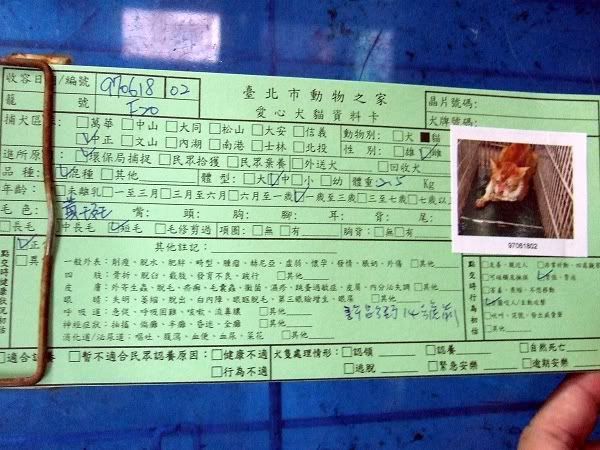 收容日期/編號 970618 02
臺北市動物之家
晶片號碼:
籠號 F20
愛心犬貓資料卡
犬牌號碼:
捕犬區 □萬華 □中山 □大同 □松山 □大安 □信義 動物別: □犬 ■貓
中正 □文山 □內湖 □南港 □士林 □北投 性別: □雄 雌
進所原 環保局捕捉 □民眾拾獲 □民眾棄養 □外送犬 □回收犬
品種: 混種 □其他 體型: □大 中 □小 □幼 體重 2.5 Kg
年齡: □未離乳 □一至三月 □三至六月 □六月至一歲 一歲至三歲 □三至七歲 □七歲以
毛色: 黃 嘴: 頭: 胸: 腳: 耳: 背: 尾:
□長毛 □中長毛 短毛 □毛修剪過 項圈: □無 □有 胸背: □無 □有
97061802
點交時健康狀況初估
正
□異
其他註記:
一般外表: 削瘦、脫水、肥胖、畸型、腫瘤、赫尼亞、虛弱、懷孕、發情、脹奶、外傷 □其他
四肢: 骨折、脫臼、截肢、發育不良、跛行 □其他
皮膚: 外寄生蟲、脫毛、疥癬、毛囊蟲、黴菌、濕疹、跳蚤過敏症、皮屑、內分泌失調 □其他
眼睛: 失明、萎縮、脫出、白內障、眼瞼脫毛、第三眼瞼增生、眼屎 □其他
呼吸道: 急促、呼吸困難、咳嗽、流鼻膿 □其他
神經症狀: 抽搐、偏癱、半癱、昏迷、全癱 □其他
消化道/泌尿道: 嘔吐、腹瀉、血便、血尿、菜花 □其他
點交時行為初估
□友善、親近人
□可碰觸及撫摸 警張、警戒
□害羞、畏縮、不想移動
□其他
□適合認養 □暫不適合民眾認養原因: □健康不適 犬隻處理情形: □認領 □認養 □自然死亡
□行為不適 □逃脫 □緊急安樂 □逾期安樂